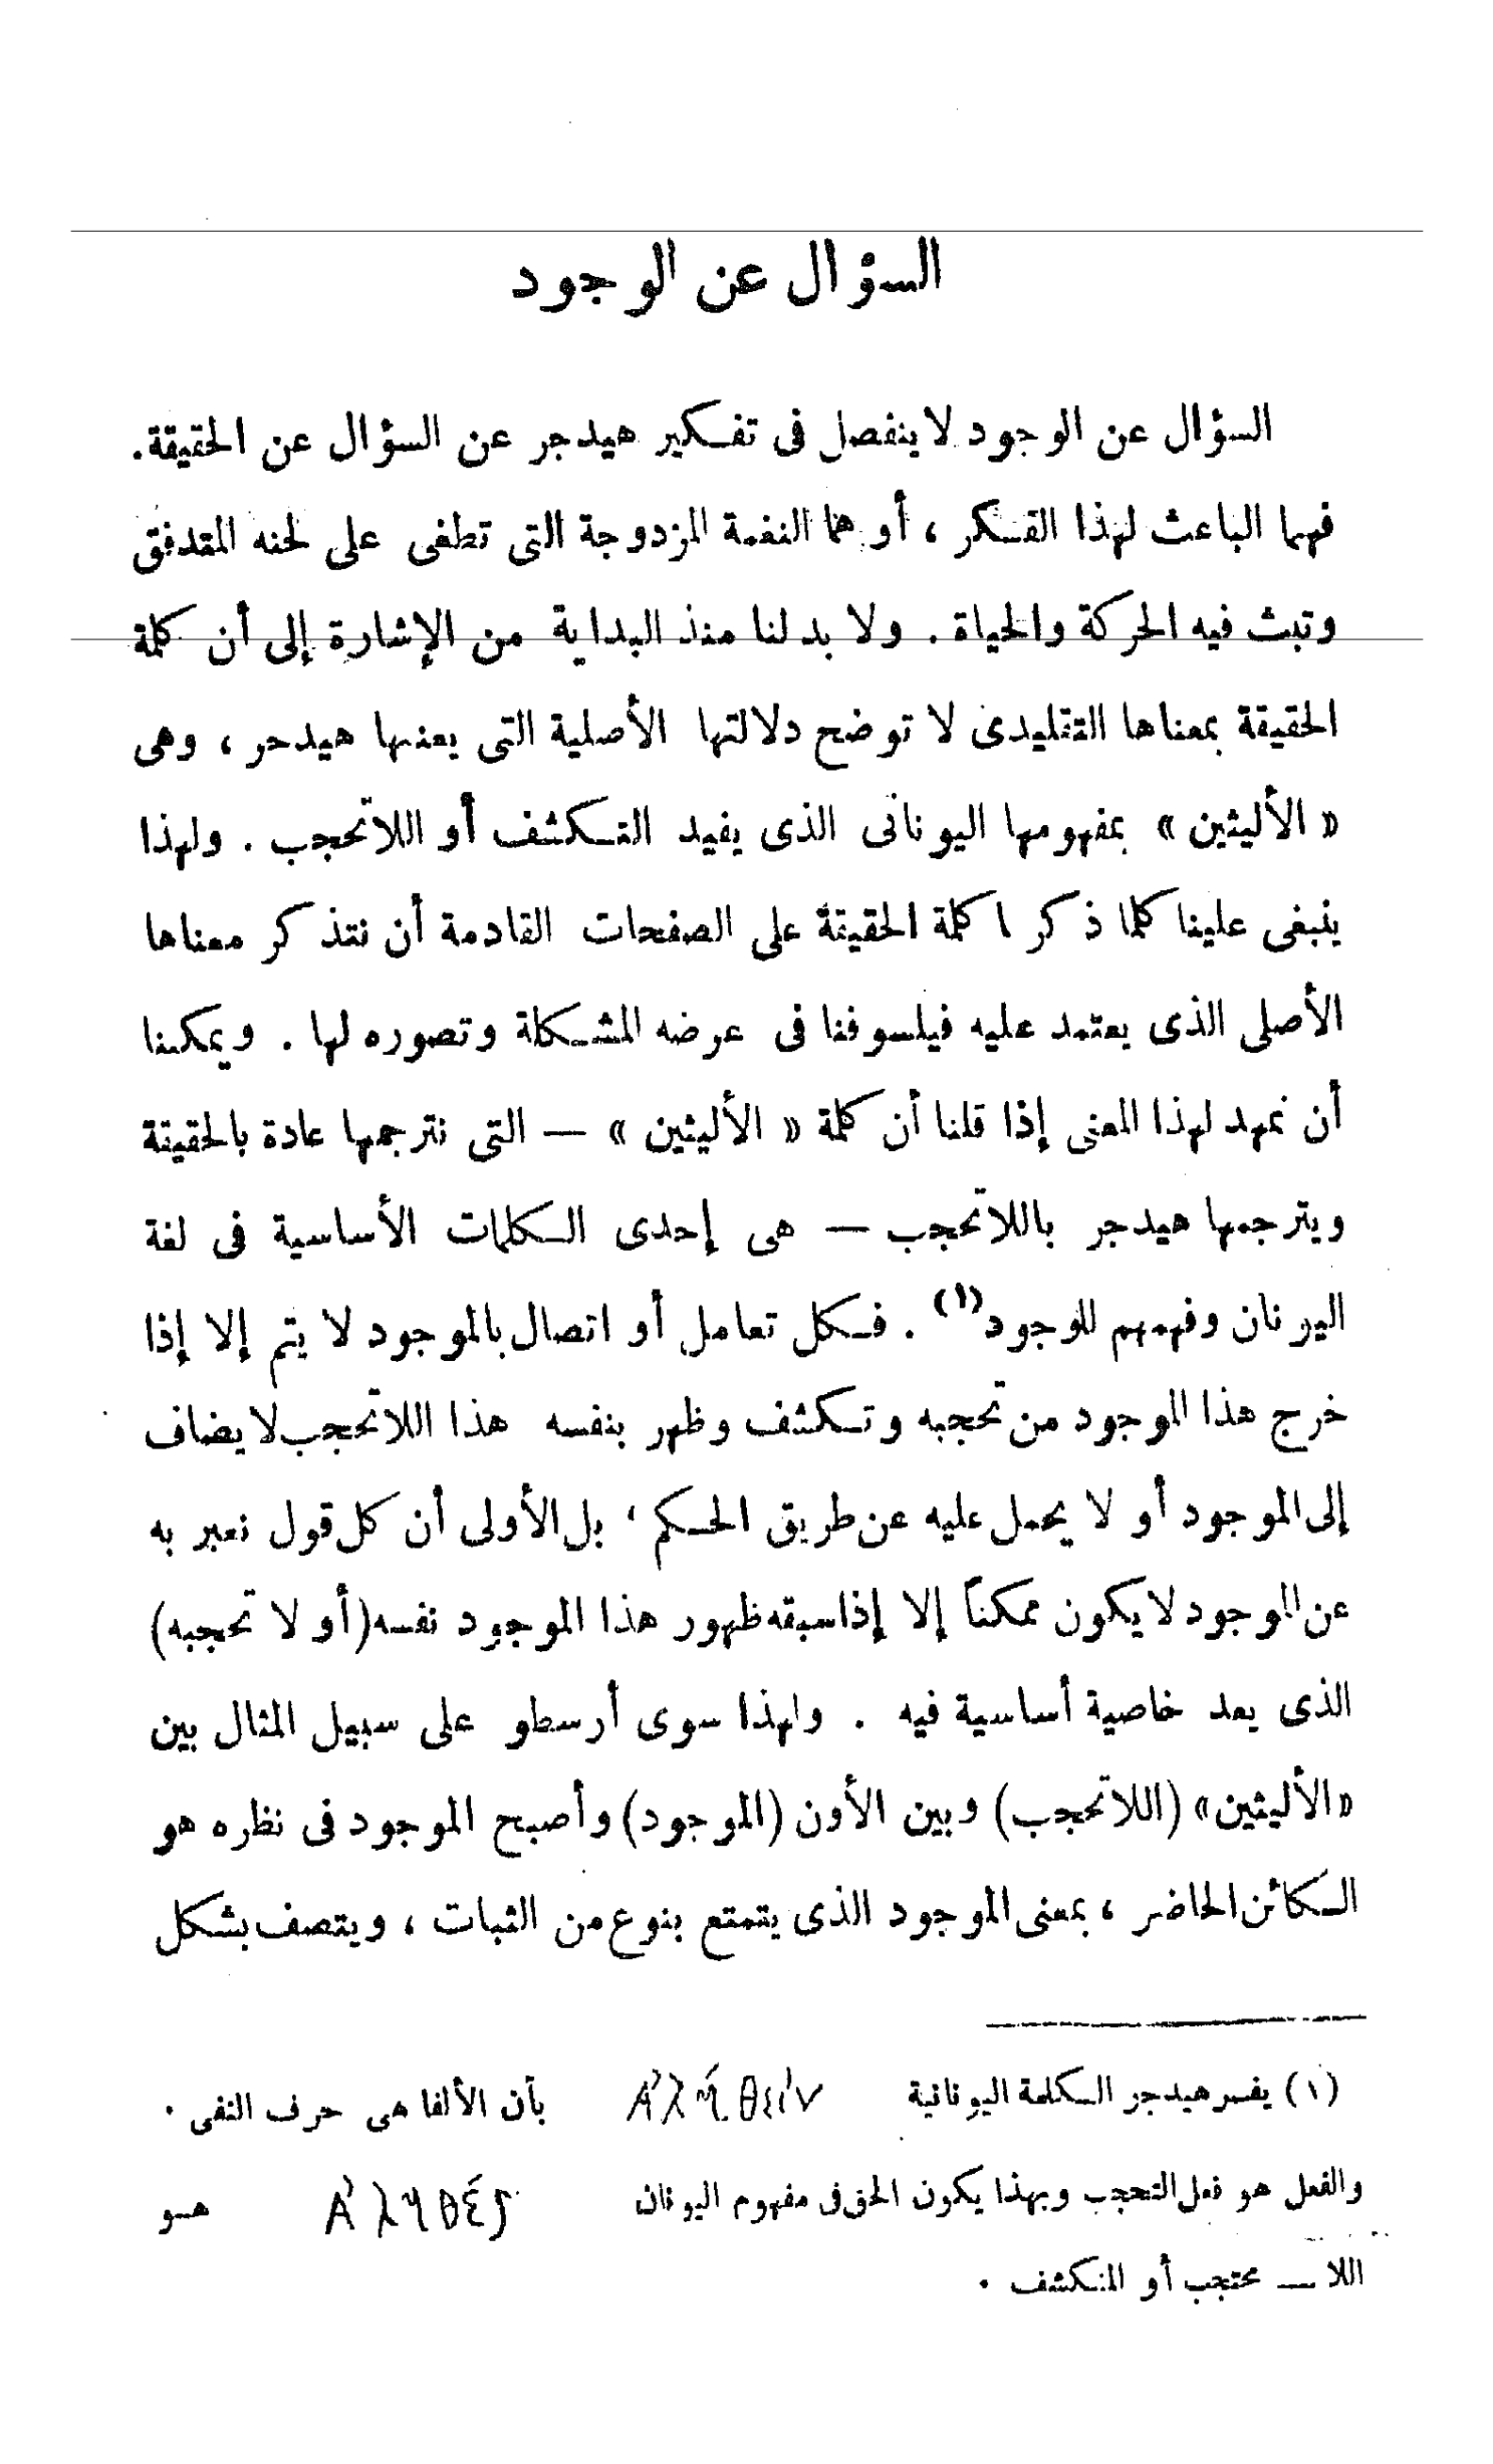 السؤال عن الوجود
السؤال عن الوجود لا ينفصل فى تفكير هيدجر عن السؤال عن الحقيقة.
فهما الباعث لهذا الفكر ، أو هما النغمة المزدوجة التى تطغى على لحنه المتدفق
وتبث فيه الحركة والحياة . ولا بد لنا منذ البداية من الإشارة إلى أن كلمة
الحقيقة بمعناها التقليدى لا توضح دلالتها الأصلية التى يعنيها هيدجر ، وهى
« الأليثين » بمفهومها اليونانى الذى يفيد التكشف أو اللاتحجب . ولهذا
ينبغى علينا كلما ذكر ا كلمة الحقيقة على الصفحات القادمة أن نتذكر معناها
الأصلى الذى يعتمد عليه فيلسوفنا فى عرضه المشكلة وتصوره لها . ويمكننا
أن نمهد لهذا المعنى إذا قلنا أن كلمة « الأليثين » — التى نترجمها عادة بالحقيقة
ويترجمها هيدجر باللاتحجب — هى إحدى الكلمات الأساسية فى لغة
اليونان وفهمهم للوجود(١) . فكل تعامل أو اتصال بالموجود لا يتم إلا إذا
خرج هذا الموجود من تحجبه وتكشف وظهر بنفسه هذا اللاتحجب لا يضاف
إلى الموجود أو لا يحمل عليه عن طريق الحكم ، بل الأولى أن كل قول نعبر به
عن الوجود لا يكون ممكناً إلا إذا سبقه ظهور هذا الموجود نفسه (أو لا تحجبه)
الذى يعد خاصية أساسية فيه . ولهذا سوى أرسطو على سبيل المثال بين
«الأليثين» (اللاتحجب) وبين الأون (الموجود) وأصبح الموجود فى نظره هو
الكائن الحاضر ، بمعنى الموجود الذى يتمتع بنوع من الثبات ، ويتصف بشكل
(١) يفسر هيدجر الكلمة اليونانية Ἀλήθειν بأن الألفا هى حرف النفى .
والفعل هو فعل التحجب وبهذا يكون الحق فى مفهوم اليونان Ἀληθές هو
اللا — محتجب أو المنكشف .